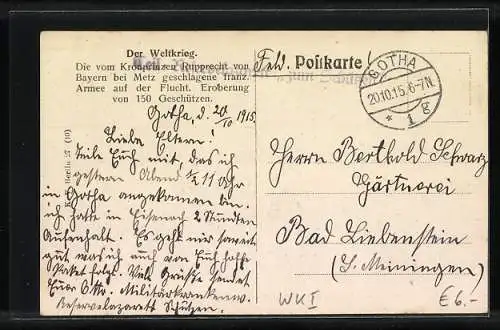 Der Weltkrieg.
Die vom Kronprinzen Rupprecht von
Bayern bei Metz geschlagene franz.
Armee auf der Flucht. Eroberung
von 150 Geschützen.
Feld. Postkarte!
GOTHA
20.10.15. 6-7N.
* 1 g
Gotha, d. 20/10 1915.
Liebe Eltern!
Teile Euch mit, das ich
gestern Abend ½ 11 Uhr
in Gotha angekommen bin.
ich hatte in Eisenach 2 Stunden
Aufenhalt. Es geht mir soweit
gut was ich auch von Euch hoffe.
Paket folgt. Viele Grüsse sendet
Euer Otto. Militärkrankenw.
Reservelazarett Schützen.
Herrn Berthold Schwarz
Gärtnerei
Bad Liebenstein
(S. Meiningen)
WKI
€6.-